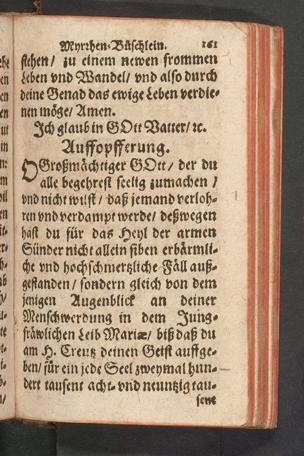 Myrrhen-Büschlein. 161
stehen/ zu einem newen frommen
Leben vnd Wandel/ vnd also durch
deine Genad das ewige Leben verdie-
nen möge/ Amen.
Ich glaub in GOtt Vatter/ ꝛc.
Auffopfferung.
O Großmächtiger GOtt/ der du
alle begehrest seelig zumachen/
vnd nicht wilst/ daß jemand verloh-
ren vnd verdampt werde/ deßwegen
hast du für das Heyl der armen
Sünder nicht allein siben erbärmli-
che vnd hochschmertzliche Fäll auß-
gestanden/ sondern gleich von dem
jenigen Augenblick an deiner
Menschwerdung in dem Jung-
fräwlichen Leib Mariæ/ biß daß du
am H. Creutz deinen Geist auffge-
ben/ für ein jede Seel zweymal hun-
dert tausent acht- vnd neuntzig tau-
sent